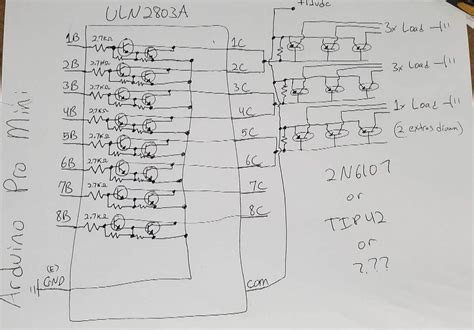 ULN2803A
+12vdc
1B 2.7K 1C
2B 2.7K 2C
3B 2.7K 3C
4B 2.7K 4C
5B 2.7K 5C
6B 2.7K 6C
7B 2.7K 7C
8B 2.7K 8C
(E)
GND
com
Arduino Pro Mini
3x Load
3x Load
1x Load
(2 extras drawn)
2N6107
or
TIP42
or
???